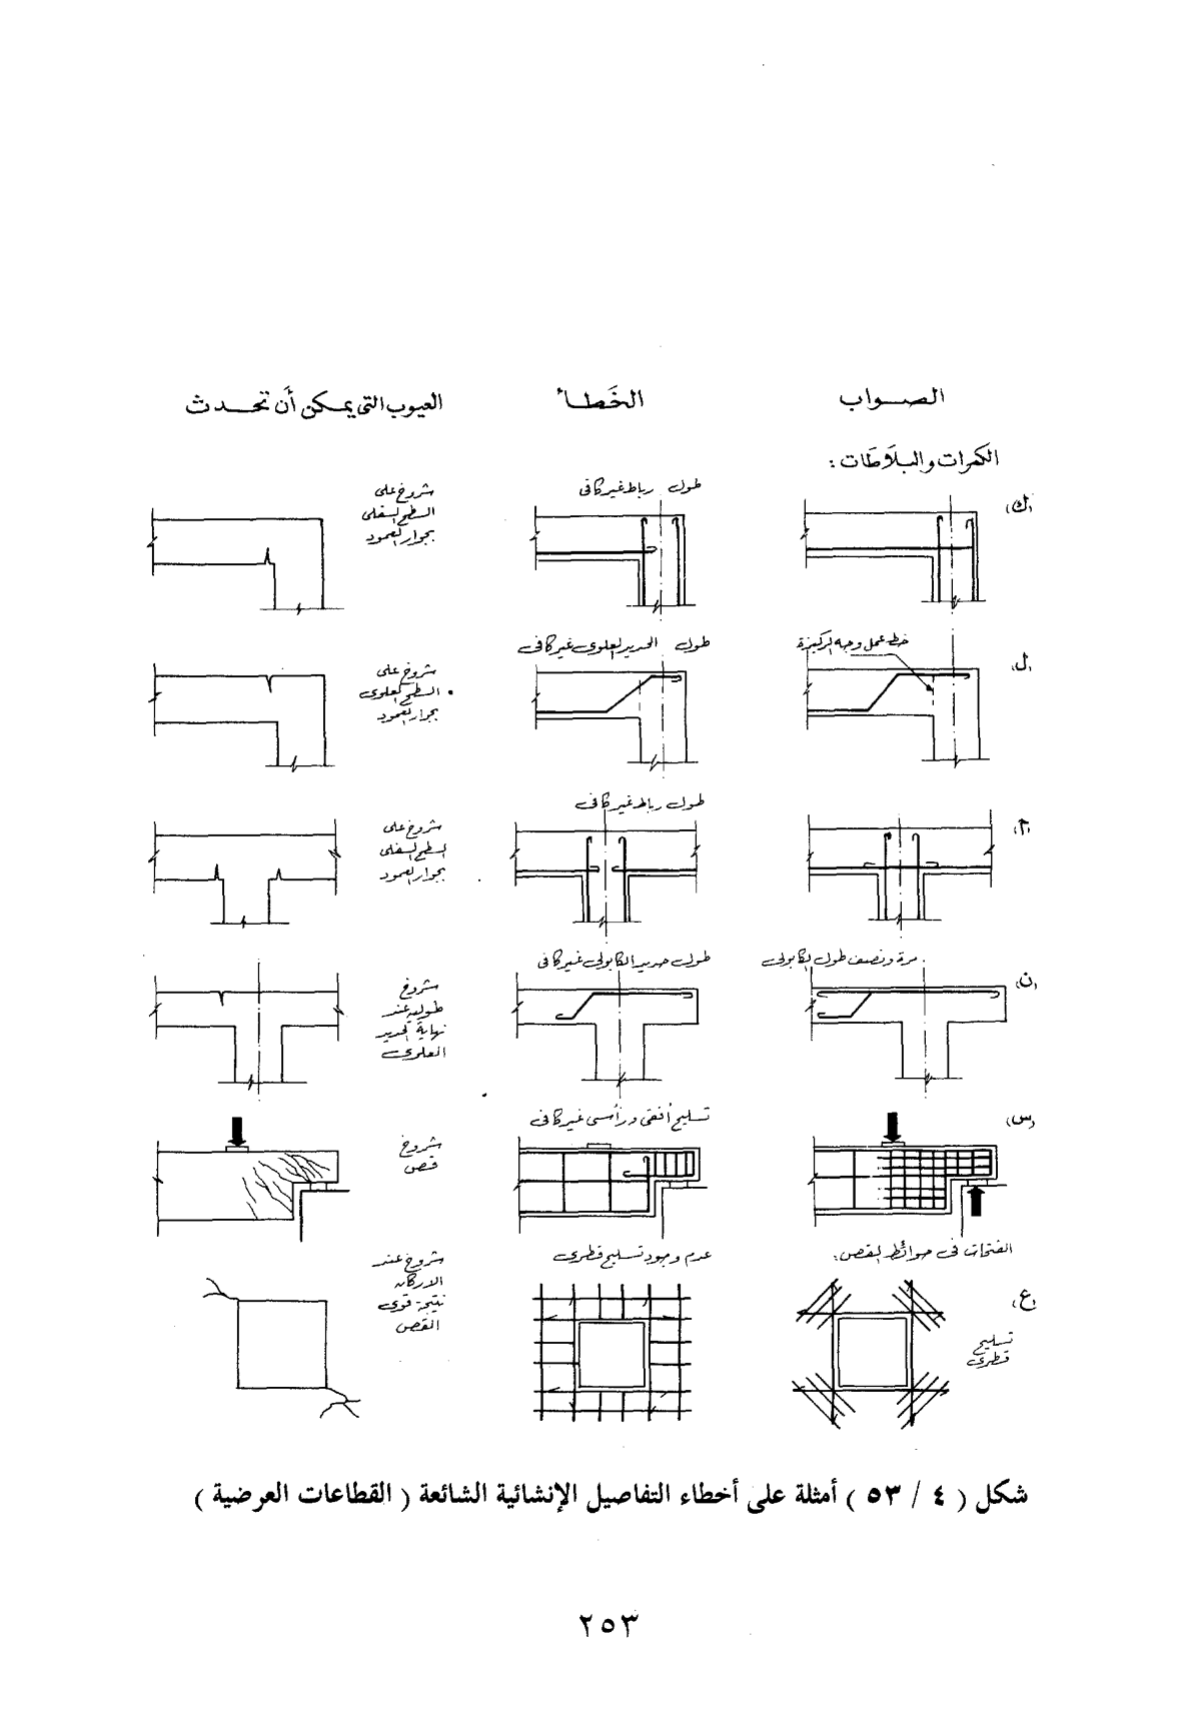 الصواب
الخطأ
العيوب التى يمكن أن تحدث
الكمرات والبلاطات :
(ك)
طول رباط غير كافى
شروخ على
السطح السفلى
بجوار العمود
(ل)
خط عمل وجه الركيزة
طول الحديد العلوى غير كافى
شروخ على
السطح العلوى
بجوار العمود
(م)
طول رباط غير كافى
شروخ على
السطح السفلى
بجوار العمود
(ن)
مرة ونصف طول الكابولى
طول حديد الكابولى غير كافى
شروخ
طولية عند
نهاية الحديد
العلوى
(س)
تسليح أفقى ورأسى غير كافى
شروخ
قص
الفتحات فى حوائط القص :
(ع)
تسليح
قطرى
عدم وجود تسليح قطرى
شروخ عند
الاركان
نتيجة قوى
القص
شكل ( ٤ / ٥٣ ) أمثلة على أخطاء التفاصيل الإنشائية الشائعة ( القطاعات العرضية )
٢٥٣